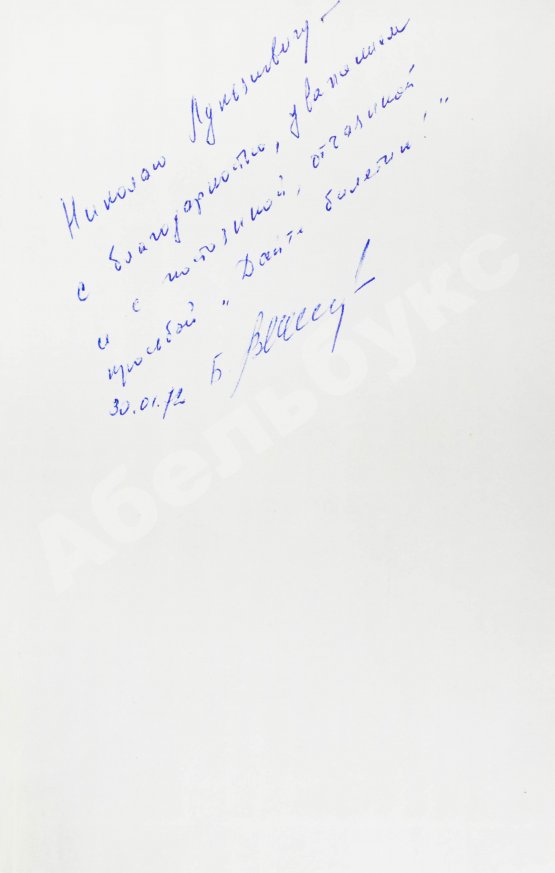 Николаю Лукьяновичу –
с благодарностью, уважением
и с постоянной, отчаянной
просьбой „Дайте билетик!"
30.01.72 Б.
Абельбукс